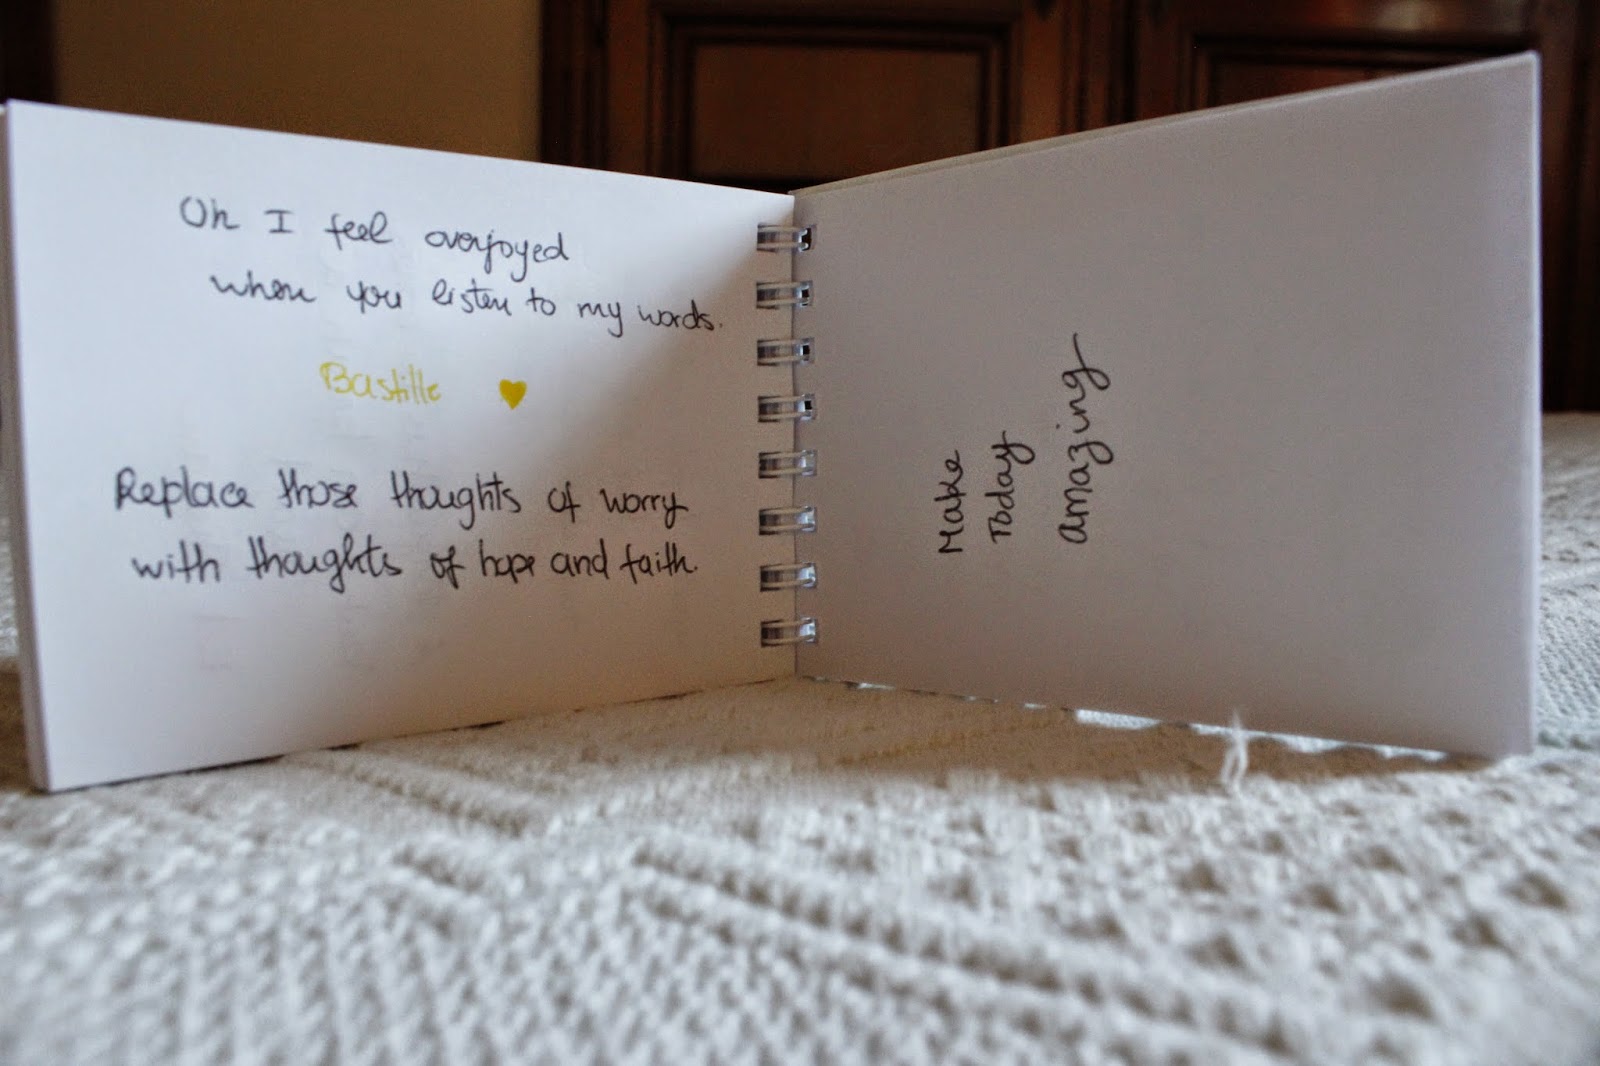 Oh I feel overjoyed
when you listen to my words.
Bastille ♥
Replace those thoughts of worry
with thoughts of hope and faith.
Make
Today
amazing